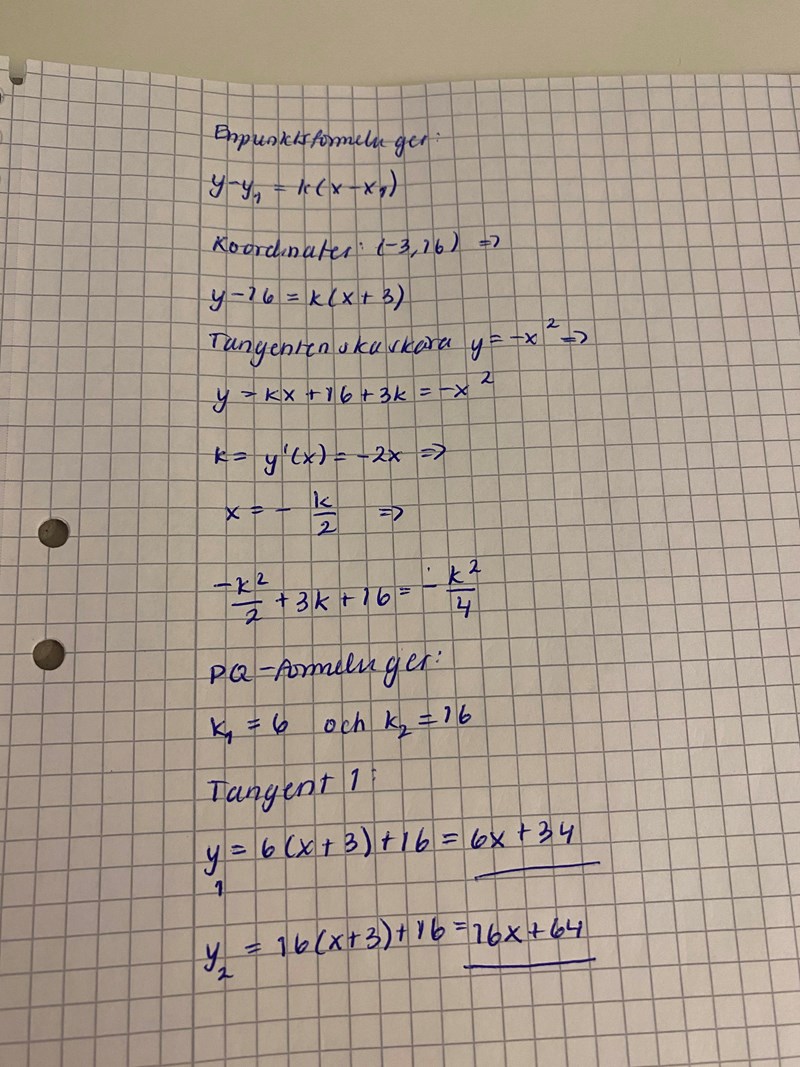 Enpunktsformeln ger:
y-y₁ = k(x-x₁)
Koordinater: (-3,16) =>
y-16 = k(x+3)
Tangenten ska skära y = -x² =>
y = kx+16+3k = -x²
k = y'(x) = -2x =>
x = - k/2 =>
-k²/2 + 3k + 16 = - k²/4
PQ-formeln ger:
k₁ = 6 och k₂ = 16
Tangent 1:
y₁ = 6(x+3)+16 = 6x+34
y₂ = 16(x+3)+16 = 16x+64